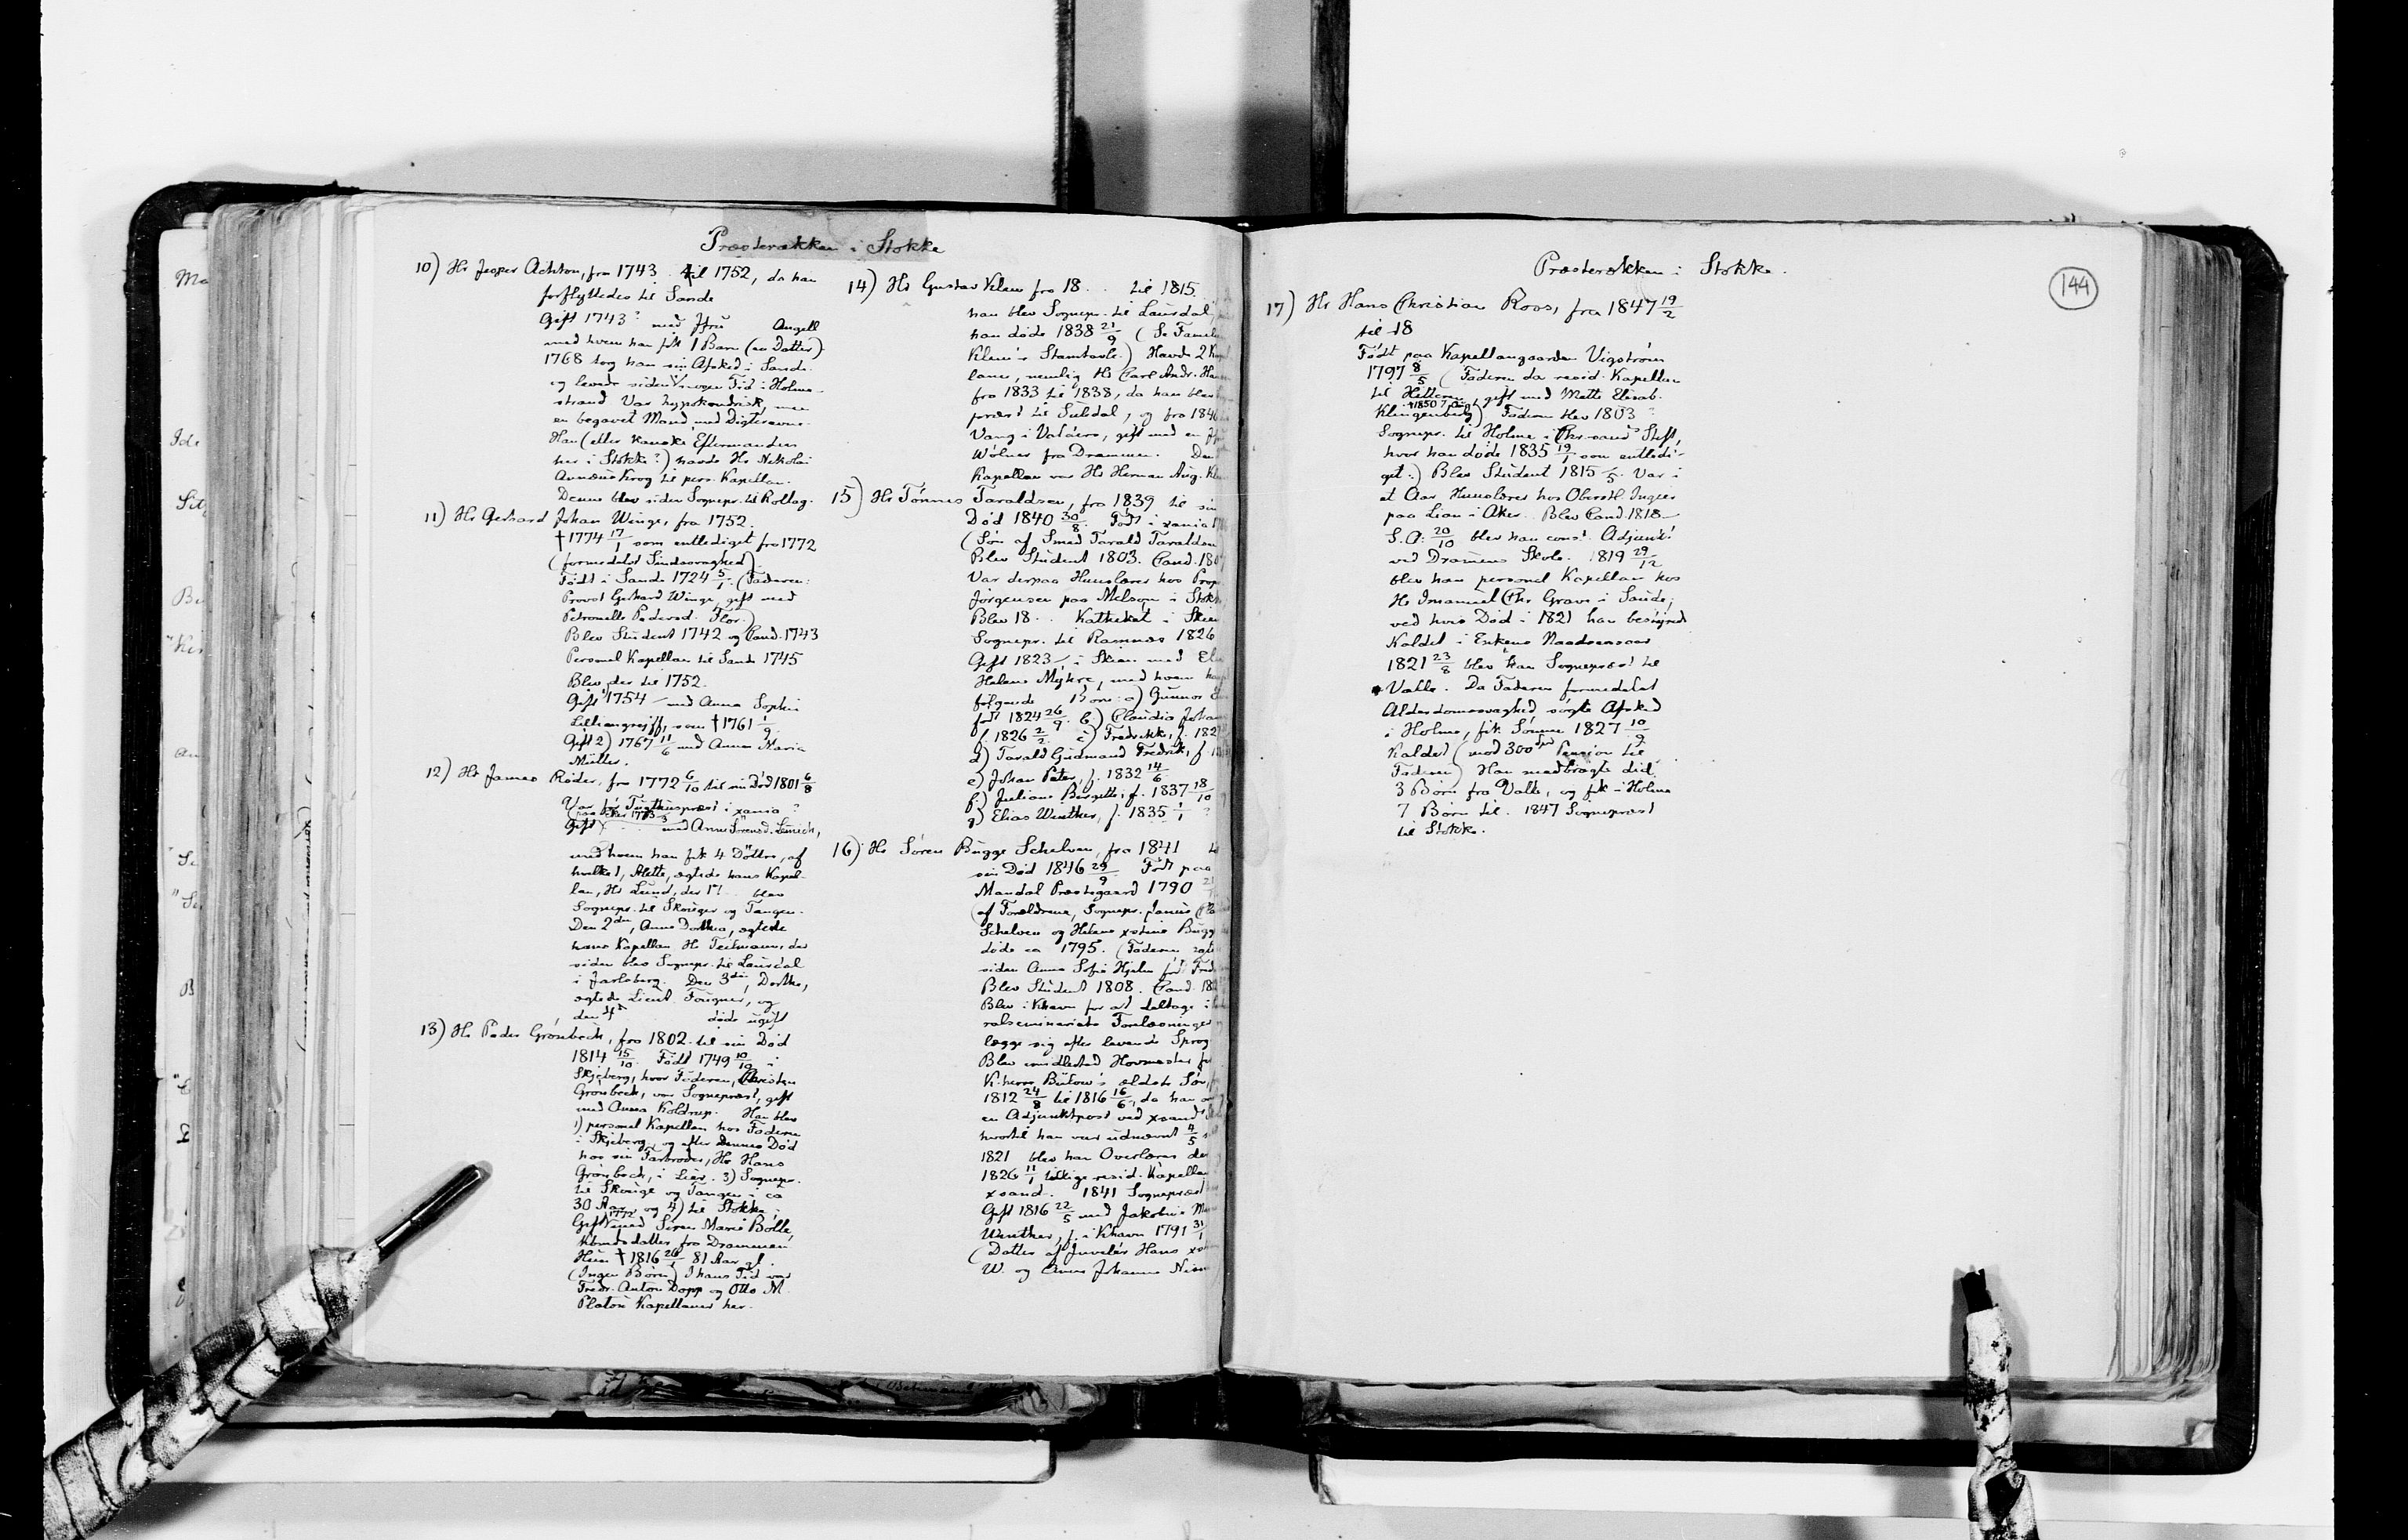 Præsterækken i Stokke
10) Hr Jesper Achton, fra 1743 til 1752, da han
forflyttedes til Sande
Gift 1743? med Jfru Angell
med hvem han fik 1 Barn (en Datter)
1768 tog han sin Afsked i Sande
og levede siden nogen Tid i Holme-
strand Var hypokondrisk, men
en begavet Mand med Digterevne.
Han (eller kanske Eftermanden
her i Stokke?) havde Hr Nikolai
Annæus Krog til pers. Kapellan.
Denne blev siden Sognepr. til Rollag.
11) Hr Gerhard Johan Winge, fra 1752.
† 1774 17/1 som entlediget fra 1772
(formedelst Sindssvaghed)
Født i Sande 1724 5/1. (Faderen:
Provst Gerhard Winge, gift med
Petronelle Pedersd. Flor.)
Blev Student 1742 og Cand. 1743
Personel Kapellan til Sande 1745
Blev der til 1752.
Gift 1754 med Anna Sophie
Lilliengreiff, som † 1761 1/9.
Gift 2) 1767 11/6 med Anna Maria
Müller.
12) Hr James Røder, fra 1772 6/10 til sin Død 1801 6/8
Var før Tugthuspræst i xania?
Gift med Anne Sørensd. Lemich,
med hvem han fik 4 Døttre, af
hvilke 1, Alette, ægtede hans Kapel-
lan, Hr Lund, der 17 blev
Sognepr. til Skouger og Tangen.
Den 2den, Anne Dorthea, ægtede
hans Kapellan Hr Teilmann, der
siden blev Sognepr. til Laurdal
i Jarlsberg. Den 3die, Dorthe,
ægtede Lieut. Fougner, og
den 4de døde ugift
13) Hr Peder Grønbech, fra 1802 til sin Død
1814 15/10. Født 1749 10/10 i
Skjeberg, hvor Faderen, Christen
Grønbech, var Sognepræst, gift
med Anna Koldrup. Han blev
1) personel Kapellan hos Faderen
i Skjeberg, og efter dennes Død
hos sin Farbroder, Hr Hans
Grønbech, i Lier. 3) Sognepr.
til Skouge og Tangen i ca
30 Aar og 4) til Stokke.
Gift 1772 med Siren Marie Bolle,
Kbmdsdatter fra Drammen
Hun † 1816 26/1 81 Aar gl.
(Ingen Børn) I hans Tid var
Fredr. Anton Dopp og Otto M.
Platou Kapellaner her.
14) Hr Gustav Klem fra 18.. til 1815.
han blev Sognepr. til Laurdal
han døde 1838 21/9 (Se Familien
Klem's Stamtavle.) Havde 2
lane, nemlig Hr Carl Andr.
fra 1833 til 1838, da han blev
præst til Suldal, og fra 1846
Vang i Valders, gift med en
Wølner fra Drammen. Den
Kapellan var Hr Herman Aug.
15) Hr Tønnes Taraldsen, fra 1839 til sin
Død 1840 30/8. Født i xania
(Søn af Smed Tarald Taraldsen
Blev Student 1803. Cand. 180
Var derpaa Huuslærer hos
Jørgensen paa Melsom i
Blev 18.. Katheket i Skien
Sognepr. til Ramnæs 1826
Gift 1823 i Skien med
Helene Myhre, med hvem
følgende Børn: a) Gunnar
født 1824 26/9. b) Claudia
f. 1826 2/2 c) Fredrikke, f. 182
d) Tarald Gudmand Fredrik, f.
e) Johan Peter, f. 1832 14/6
f) Juliane Birgitte, f. 1837 18/10
g) Elias Winther, f. 1835 1/1 ?
16) Hr Søren Bugge Schelven, fra 1841
sin Død 1846 29/9. Født paa
Mandal Præstegaard 1790
(af Forældrene, Sognepr. Janus
Schelven og Helene xstine
døde ca 1795. (Faderen
siden Anna Sofie Hjelm født
Blev Student 1808. Cand. 18
Blev i Khavn for at deltage i
ralseminariets Forelæsninger
lægge sig efter levende Sprog
Blev imidlertid Hovmester for
K.herre Bülow's ældste Søn,
1812 24/8 til 1816 16/6, da han
en Adjunktpost ved xsand
hvortil han var udnævnt 4/5
1821 blev han Overlærer
1826 11/1 tillige resid. Kapellan
xsand. 1841 Sognepræst
Gift 1816 22/5 med Jakobine
Winther, f. i Khavn 1791 31/1
(Datter af Juvelér Hans
W. og Anne Johanne
Præsterækken i Stokke.
144
17) Hr Hans Christian Roos, fra 1847 19/2
til 18
Født paa Kapellangaarden Vigstrøm
1797 8/5 (Faderen da resid. Kapellan
til Hitterøn, gift med Mette Elisab.
Klingenberg) Faderen blev 1803
Sognepr. til Holme i Chr.sands Stift,
hvor han døde 1835 19/1 som entledi-
get.) Blev Student 1815. Var i
et Aar Huuslærer hos Oberstl. Ingier
paa Lian i Aker. Blev Cand. 1818
S.A. 20/10 blev han const. Adjunkt
ved Dramens Skole. 1819 29/12
blev han personel Kapellan hos
Hr Imanuel Chr Grave i Sande,
ved hvis Død i 1821 han bestyrede
Kaldet i Enkens Naadsensaar
1821 23/8 blev han Sognepræst til
Valle. Da Faderen formedelst
Alderdomssvaghed søgte Afsked
i Holme, fik Sønnen 1827 10/9
Kaldet (mod 300 Spd Pension til
Faderen) Han medbragte did
3 Børn fra Valle, og fik i Holme
7 Børn til. 1847 Sognepræst
til Stokke.